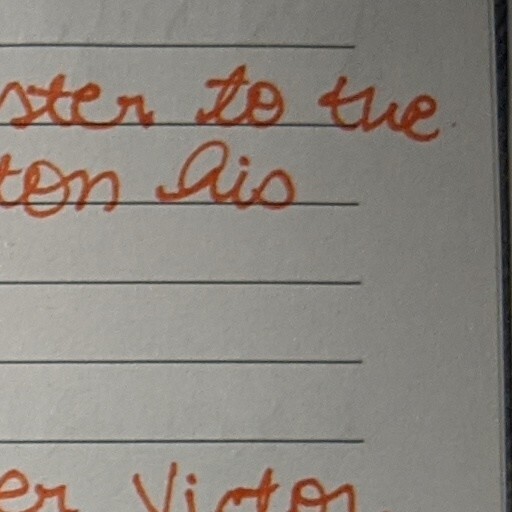 ster to the
ton his
er Victor